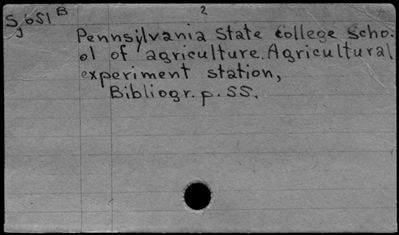 2
S,651 B
Pennsylvania State College Scho-
ol of agriculture. Agricultural
experiment station,
Bibliogr. p. 55.